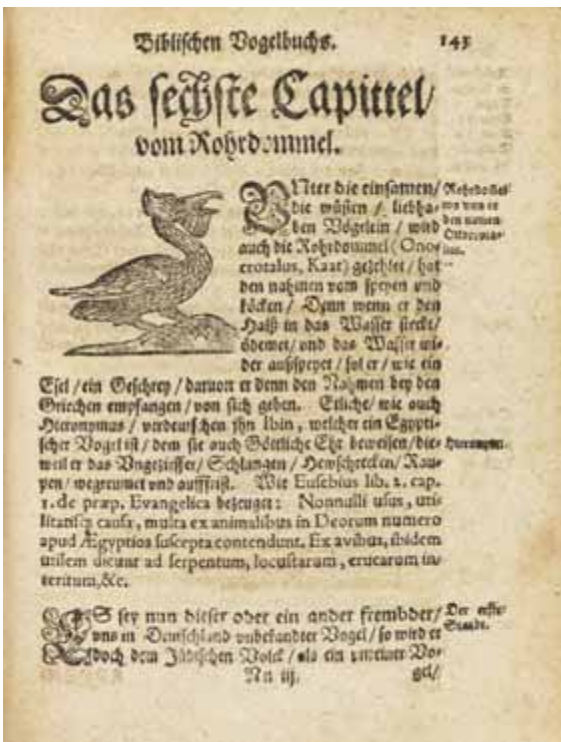 Biblischen Vogelbuchs. 143
Das sechste Capittel/
vom Rohrdommel.
VNter die einsamen/
die wüsten / liebha-
ben Vögelein / wird
auch die Rohrdommel (Ono-
crotalus, Kaat) gezehlet / hat
den nahmen vom speyen vnd
köcken / Denn wenn er den
Halß in das Wasser steckt/
ödemet/ vnd das Wasser wi-
der außspeyet / sol er / wie ein
Esel / ein Geschrey / daruon er denn den Nahmen bey den
Griechen empfangen / von sich geben. Etliche/ wie auch
Hieronymus / verdeutschen jhn Ibin, welcher ein Egypti-
scher Vogel ist / dem sie auch Göttliche Ehr beweisen / die-
weil er das Vngeziffer/ Schlangen / Hewschrecken/ Rau-
pen/ wegreumet vnd aufffrist. Wie Eusebius lib. 2. cap.
1. de præp. Evangelica bezeuget: Nonnulli usus, uti-
litatisq; causa, multa ex animalibus in Deorum numero
apud Ægyptios suscepta contendunt. Ex avibus, ibidem
utilem dicunt ad serpentum, locustarum, erucarum in-
teritum, &c.
ES sey nun dieser oder ein ander frembder/
vns in Deutschland vnbekandter Vogel / so wird er
doch dem Jüdischen Volck / als ein vnreiner Vo-
Nn iij. gel/
wo von er
den namen
Hieronym.
Der erste